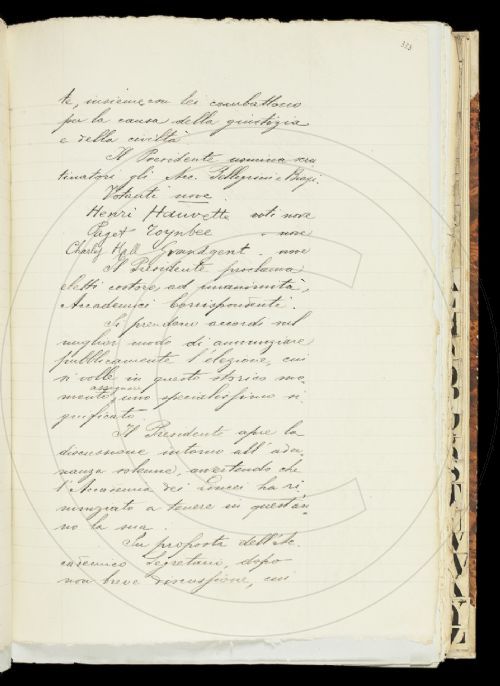 333
te, insieme con lei combattono
per la causa della giustizia
e della civiltà
Il Presidente nomina scru
tinatori gli Acc. Pellegrini e Biagi.
Votanti nove.
Henri Hauvette voti nove
Paget Toynbee " nove
Charles Hall Grandgent - nove
Il Presidente proclama
eletti costoro, ad unanimità,
Accademici Corrispondenti.
Si prendono accordi sul
miglior modo di annunziare
pubblicamente l'elezione, cui
si volle in questo storico mo-
assegnare
mento, uno specialissimo si
gnificato.
Il Presidente apre la
discussione intorno all'adu
nanza solenne, avvertendo che
l'Accademia dei Lincei ha ri
nunziato a tenere in quest'an-
no la sua.
Su proposta dell'Ac.
cademico Segretario, dopo
non breve discussione, cui